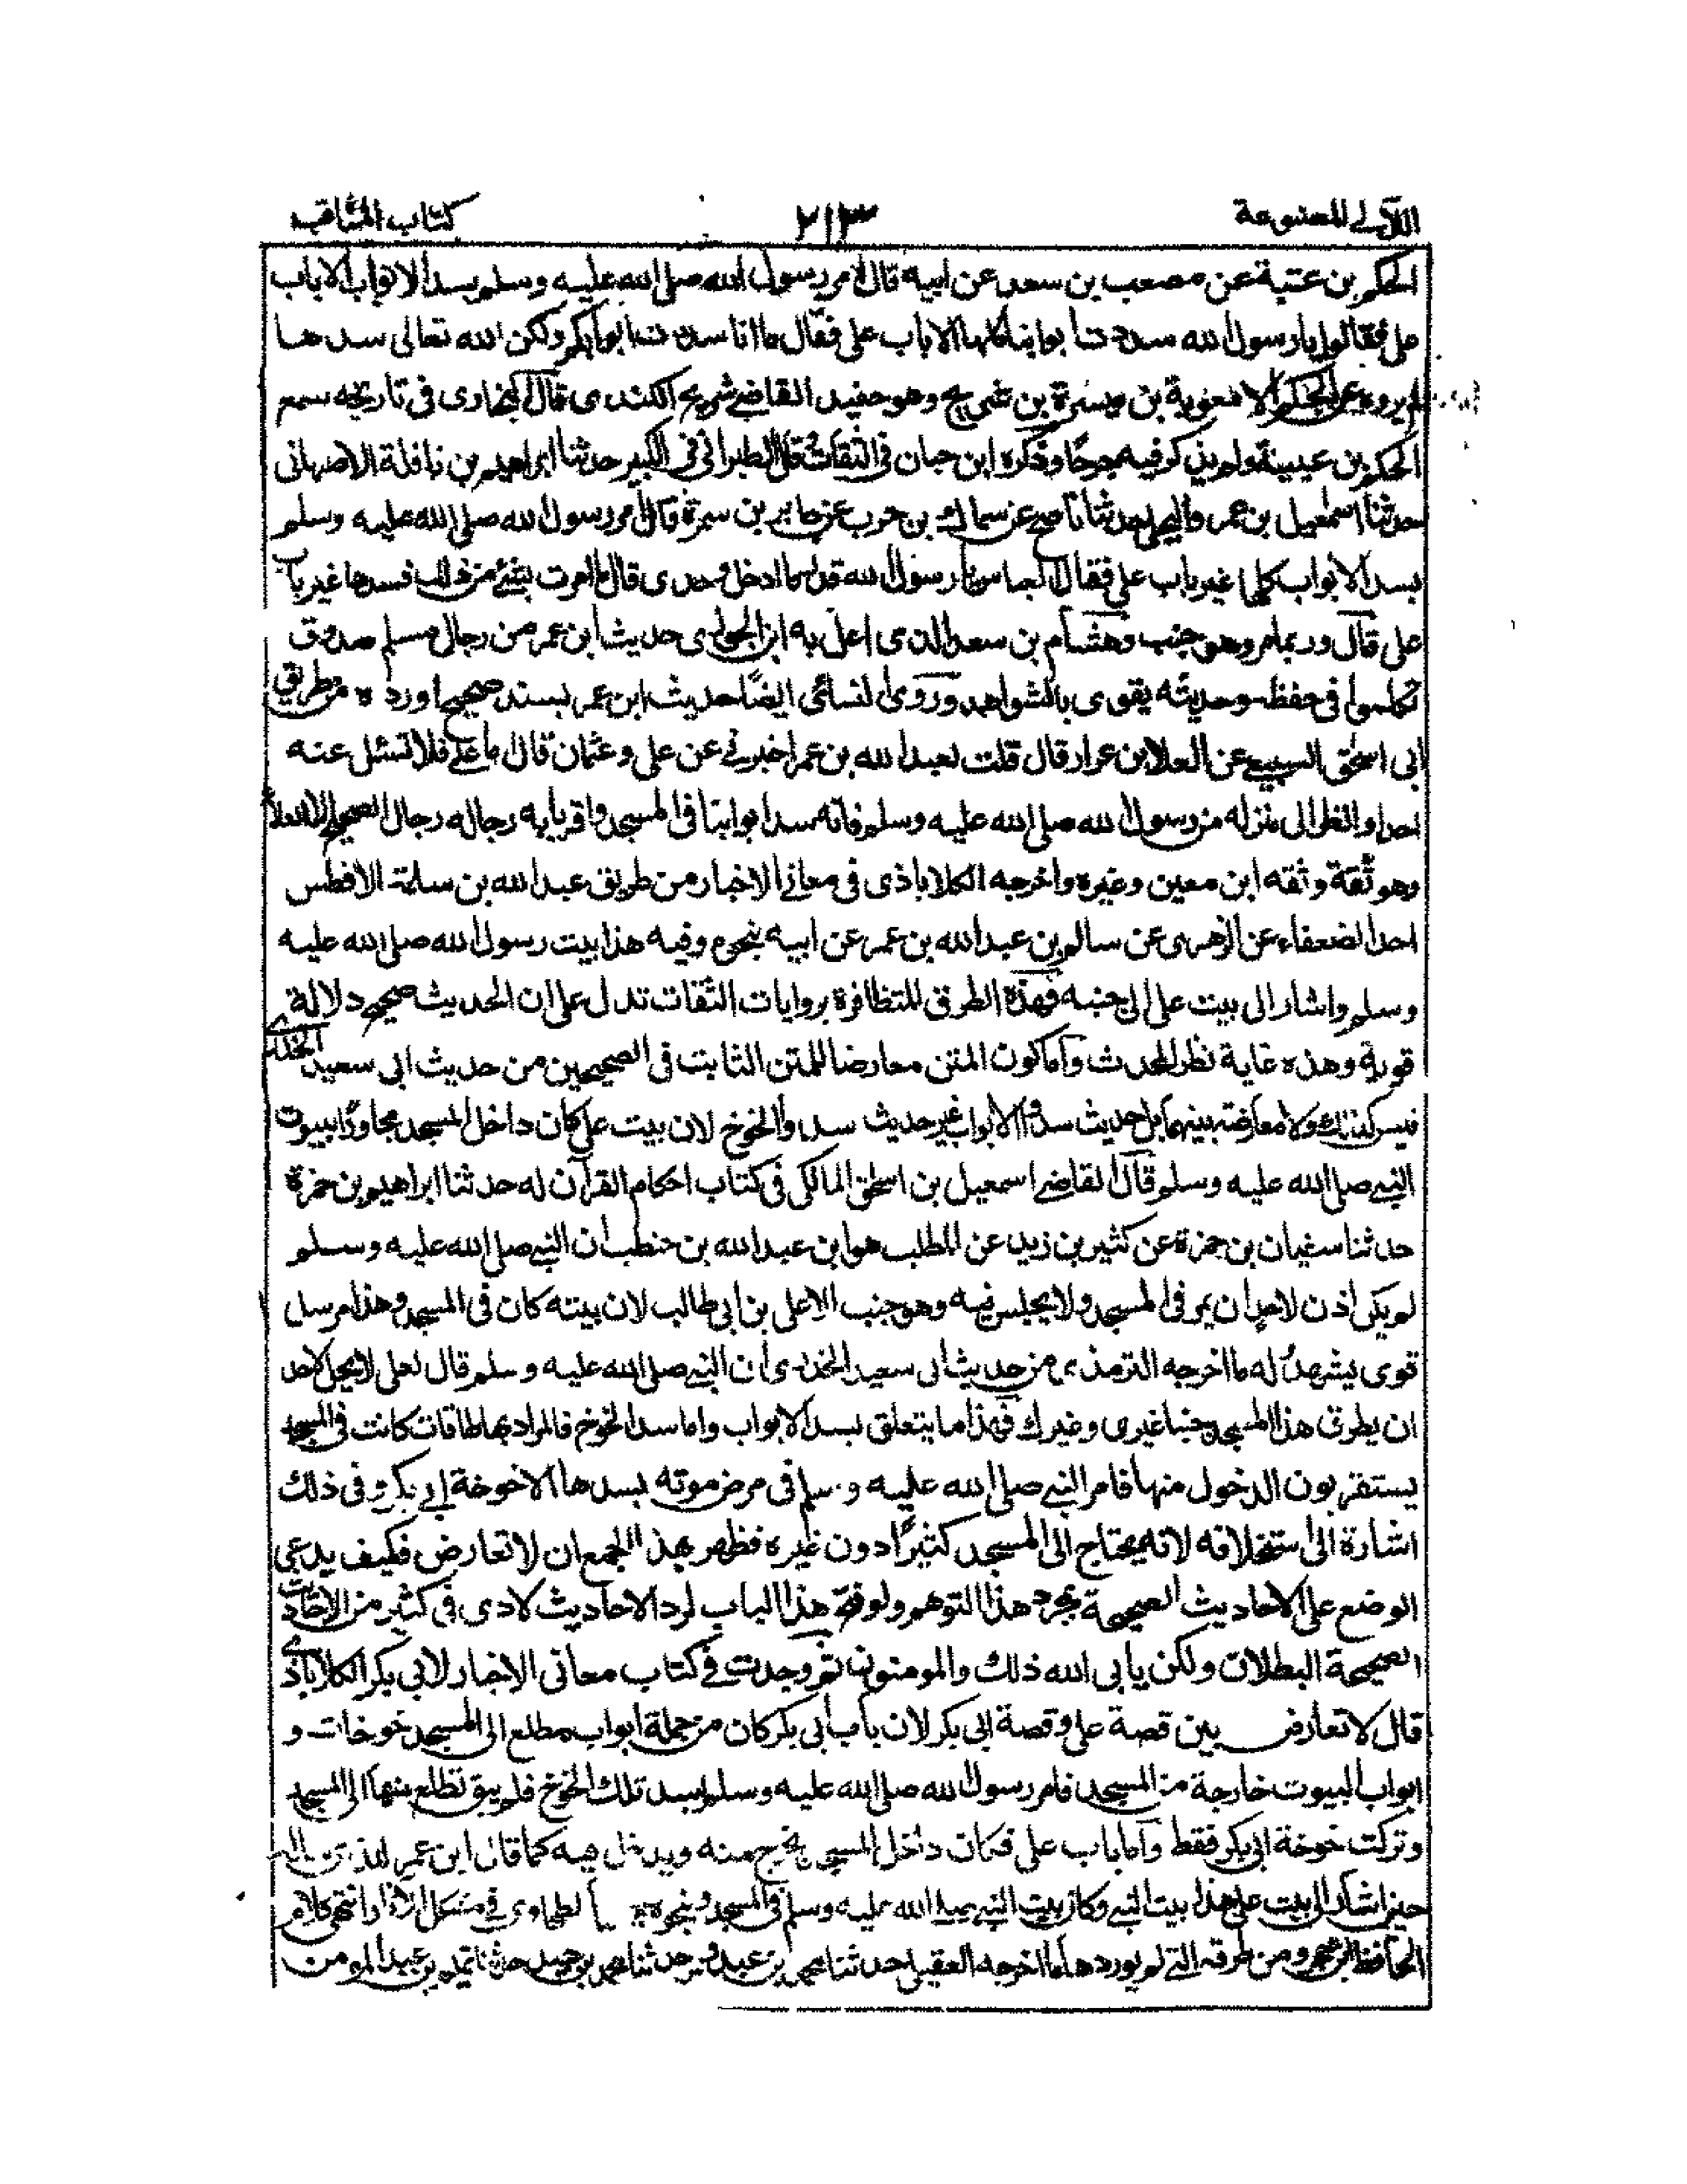 اللآلى المصنوعة ٢١٣ كتاب المناقب
الحكم بن عتبة عن مصعب بن سعد عن ابيه قال امر رسول الله صلى الله عليه وسلم بسد الابواب الا باب
على فقالوا يا رسول الله سددت ابوابنا كلها الا باب على فقال ما انا سددت ابوابكم ولكن الله تعالى سدها
لم يروه عن الحكم الا معوية بن ميسرة بن شريح وهو حفيد القاضى شريح الكندى قال البخارى فى تاريخه سمع
الحكم بن عيينة ولم يذكر فيه جرحًا وذكره ابن حبان فى الثقات وقال الطبرانى فى الكبير حدثنا ابراهيم بن نافلة الاصبهانى
حدثنا اسمعيل بن عمرو البجلى حدثنا ناصح عن سماك بن حرب عن جابر بن سمرة قال امر رسول الله صلى الله عليه وسلم
بسد الابواب كلها غير باب على فقال العباس يا رسول الله قدر ما ادخل وحدى قال ما امرت بشئ من ذلك فسدها غير باب
على قال وربما مر وهو جنب وهشام بن سعد الذى اعل به ابن الجوزى حديث ابن عمر من رجال مسلم صدوق
تكلموا فى حفظه وحديثه يقوى بالشواهد وروى النسائى ايضًا حديث ابن عمر بسند صحيح اورده من طريق
ابى اسحق السبيعى عن العلا بن عرار قال قلت لعبد الله بن عمر اخبرنى عن على وعثمان قال اما على فلا تسئل عنه
احدا وانظر الى منزله من رسول الله صلى الله عليه وسلم فانه سد ابوابنا فى المسجد واقر بابه رجاله رجال الصحيح الا العلا
وهو ثقة وثقه ابن معين وغيره واخرجه الكلاباذى فى معانى الاخبار من طريق عبد الله بن سلمة الافطس
احد الضعفاء عن الزهرى عن سالم بن عبد الله بن عمر عن ابيه بنحوه وفيه هذا بيت رسول الله صلى الله عليه
وسلم واشار الى بيت على الى جنبه فهذه الطرق المتظافرة بروايات الثقات تدل على ان الحديث صحيح دلالة
قوية وهذه غاية نظر المحدث وأما كون المتن معارضا للمتن الثابت فى الصحيحين من حديث ابى سعيد الخدرى
فليس كذلك ولا معارضة بينهما بل حديث سدوا الابواب غير حديث سدوا الخوخ لان بيت على كان داخل المسجد مجاورًا لبيوت
النبى صلى الله عليه وسلم قال القاضى اسمعيل بن اسحق المالكى فى كتاب احكام القرآن له حدثنا ابراهيم بن حمزة
حدثنا سفيان بن حمزة عن كثير بن زيد عن المطلب هو ابن عبد الله بن حنطب ان النبى صلى الله عليه وسلم
لم يكن اذن لاحد ان يمر فى المسجد ولا يجلس فيه وهو جنب الا على بن ابى طالب لان بيته كان فى المسجد وهذا مرسل
قوى يشهد له ما اخرجه الترمذى من حديث ابى سعيد الخدرى ان النبى صلى الله عليه وسلم قال لعلى لا يحل لاحد
ان يطرق هذا المسجد جنبا غيرى وغيرك فهذا ما يتعلق بسد الابواب واما سد الخوخ فالمراد بها طاقات كانت فى المسجد
يستقربون الدخول منها فامر النبى صلى الله عليه وسلم فى مرض موته بسدها الا خوخة ابى بكر وفى ذلك
اشارة الى استخلافه لانه يحتاج الى المسجد كثيرًا دون غيره فظهر بهذا الجمع ان لا تعارض فكيف يدعى
الوضع على الاحاديث الصحيحة بمجرد هذا التوهم ولو فتح هذا الباب لرد الاحاديث لادى فى كثير من الاحاديث
الصحيحة البطلان ولكن يابى الله ذلك والمومنون ثم وجدت فى كتاب معانى الاخبار لابى بكر الكلاباذى
قال لا تعارض بين قصة على وقصة ابى بكر لان باب ابى بكر كان من جملة ابواب مطلع الى المسجد خوخات و
ابواب البيوت خارجة من المسجد فامر رسول الله صلى الله عليه وسلم بسد تلك الخوخ فلم يبق تطلع منها الى المسجد
وتركت خوخة ابى بكر فقط وأما باب على فكان داخل المسجد يخرج منه ويدخل فيه كما قال ابن عمر للذى
حين اشار الى بيت على هذا بيت النبى وكان بيت النبى صلى الله عليه وسلم فى المسجد ونحوه الطحاوى فى مشكل الاثار انتهى كلام
الحافظ ابن حجر ومن طرقه التى لم يوردها ما اخرجه العقيلى حدثنا محمد بن عبدوس حدثنا محمد بن حميد حدثنا تميم بن عبد المومن